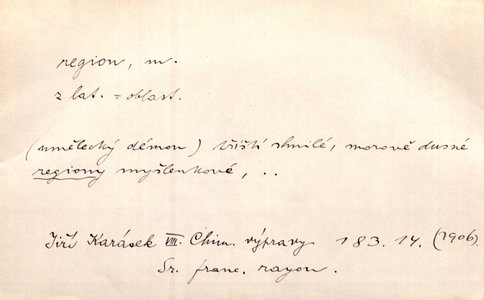 region, m.
z lat. = oblast.
(umělecký démon) tříští shnilé, morově dusné
regiony myšlenkové, ..
Jiří Karásek VIII. Chim. výpravy 183.14. (1906).
Sr. franc. rayon.